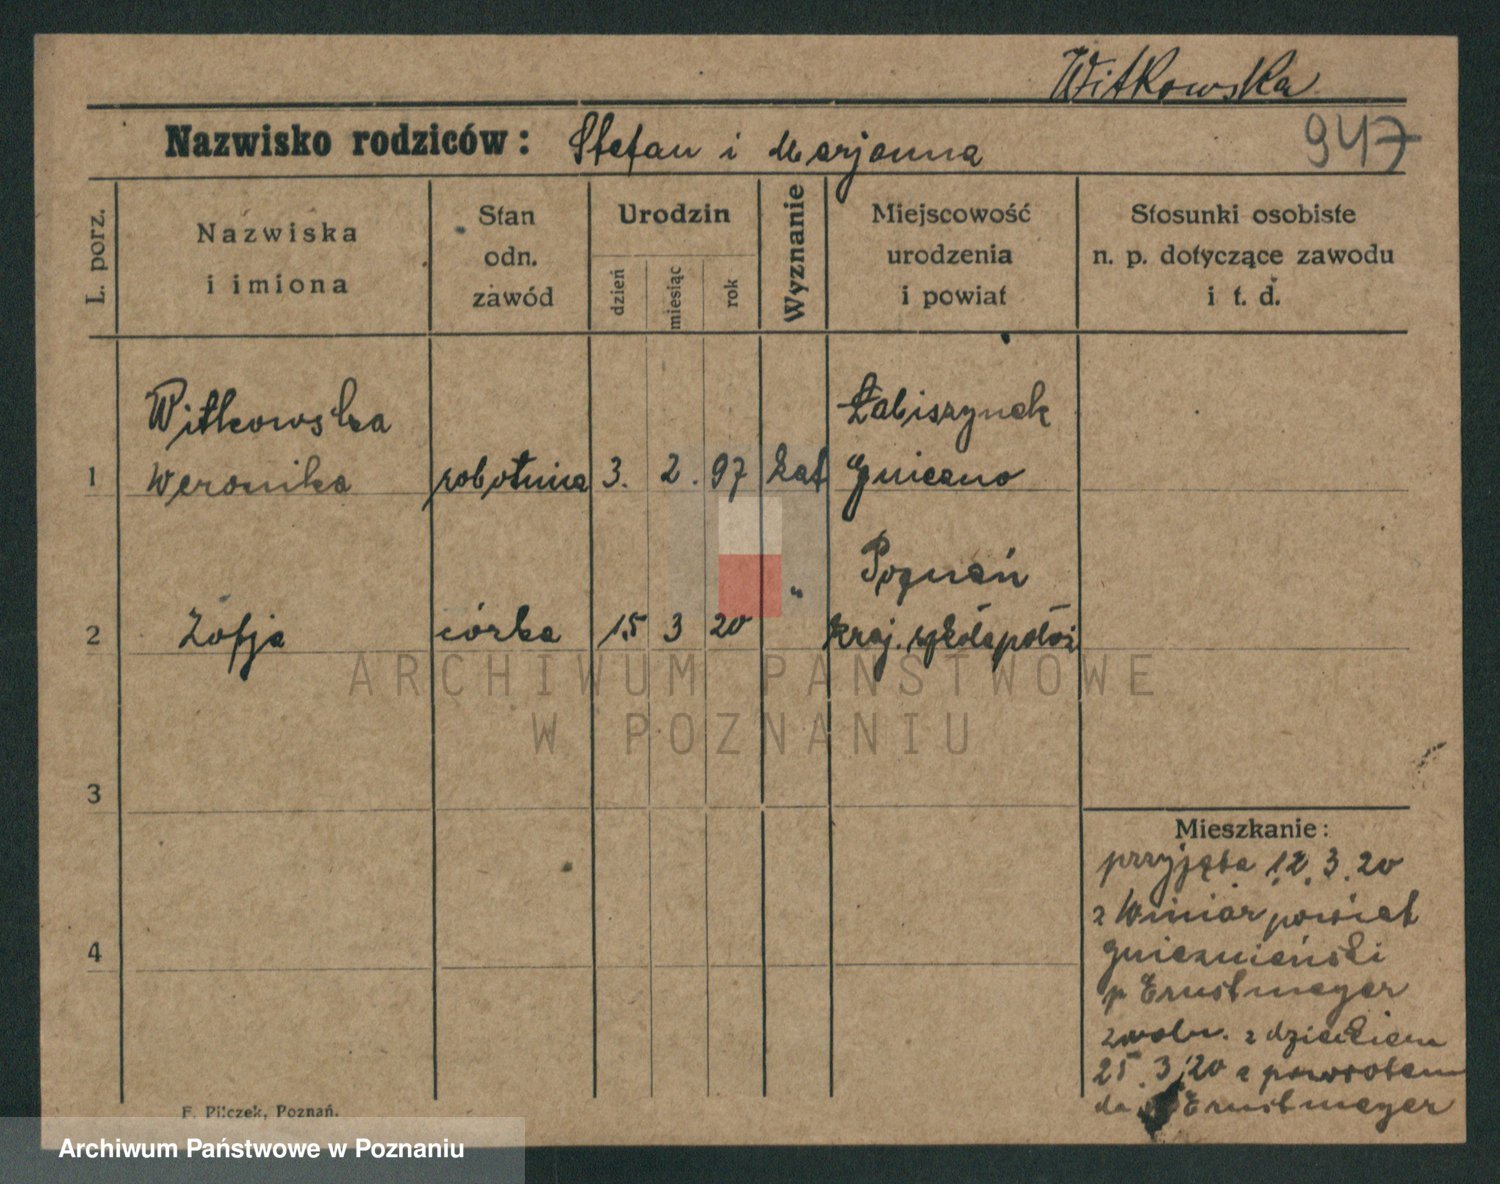 Witkowska
Nazwisko rodziców: Stefan i Marjanna
947
L. porz.
Nazwiska
i imiona
Stan
odn.
zawód
Urodzin
dzień
miesiąc
rok
Wyznanie
Miejscowość
urodzenia
i powiat
Stosunki osobiste
n. p. dotyczące zawodu
i t. d.
Witkowska Łabiszynek
1 Weronika robotnica 3. 2. 97 kat Gniezno
Poznań
2 Zofja córka 15 3 20 " kraj. szkoła położ
3
Mieszkanie:
przyjęta 12.3.20
z Winiar powiat
4 gnieznieński
p Ernstmeyer
zwoln. z dzieckiem
25.3.20 z powrotem
do Ernstmeyer
F. Pilczek, Poznań.
ARCHIWUM PAŃSTWOWE
W POZNANIU
Archiwum Państwowe w Poznaniu